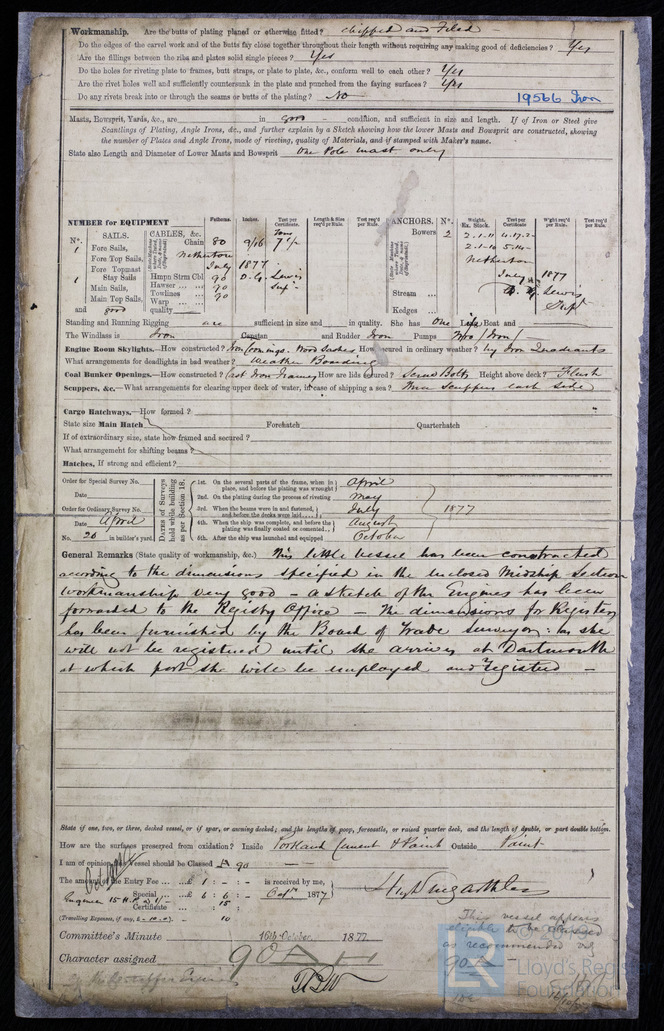 Workmanship. Are the butts of plating planed or otherwise fitted? chipped and Filed
Do the edges of the carvel work and of the butts fay close together throughout their length without requiring any making good of deficiencies? Yes
Are the fillings between the ribs and plates solid single pieces? Yes
Do the holes for riveting plate to frames, butt straps, or plate to plate, &c., conform well to each other? Yes
Are the rivet holes well and sufficiently countersunk in the plate and punched from the faying surfaces? Yes
Do any rivets break into or through the seams or butts of the plating? No
19566 Iron
Masts, Bowsprit, Yards, &c., are in good condition, and sufficient in size and length. If of Iron or Steel give
Scantlings of Plating, Angle Irons, &c., and further explain by a Sketch showing how the lower Masts and Bowsprit are constructed, showing
the number of Plates and Angle Irons, mode of riveting, quality of Materials, and if stamped with Maker's name.
State also Length and Diameter of Lower Masts and Bowsprit One Pole mast only
NUMBER for EQUIPMENT Fathoms. Inches. Test per Certificate. Length & Size req'd per Rule. Test req'd per Rule. ANCHORS. No. Weight. Ex. Stock. Test per Certificate. W'ght req'd per Rule. Test req'd per Rule.
No. SAILS. CABLES, &c. Tons Bowers 2 2.1.11
1 Fore Sails, Chain 80 9/16 2.1.10
Fore Top Sails, Netherton Netherton
Fore Topmast July 1877 July 1877
1 Stay Sails Hmpn Strm Cbl 90 D. G. Lewis
Main Sails, Hawser 90 Stream Lewis
Main Top Sails, Towlines 90
Warp Kedges
and good quality
Standing and Running Rigging are sufficient in size and in quality. She has One Life Boat and
The Windlass is Iron Capstan and Rudder Iron Pumps Two (Iron)
Engine Room Skylights.—How constructed? Iron Comings. Wood Sashes How secured in ordinary weather? by Iron Quadrants
What arrangements for deadlights in bad weather? Weather Boarding
Coal Bunker Openings.—How constructed? Cast Iron Frames How are lids secured? Screw Bolts Height above deck? Flush
Scuppers, &c.—What arrangements for clearing upper deck of water, in case of shipping a sea? Three Scuppers each side
Cargo Hatchways.—How formed?
State size Main Hatch Forehatch Quarterhatch
If of extraordinary size, state how framed and secured?
What arrangement for shifting beams?
Hatches, If strong and efficient?
Order for Special Survey No. Dates of Surveys held while building as per Section 18. 1st. On the several parts of the frame, when in place, and before the plating was wrought April
Date 2nd. On the plating during the process of riveting May
Order for Ordinary Survey No. 3rd. When the beams were in and fastened, and before the decks were laid July 1877
Date April 4th. When the ship was complete, and before the plating was finally coated or cemented August
No. 20 in builder's yard. 5th. After the ship was launched and equipped October
General Remarks (State quality of workmanship, &c.) This little vessel has been constructed
according to the dimensions specified in the inclosed Midship Section
Workmanship very good – a sketch of the Engines has been
forwarded to the Registry Office – The dimensions for Register
has been furnished by the Board of Trade surveyor: as she
will not be registered until she arrives at Dartmouth
at which port she will be employed and registered –
State if one, two, or three, decked vessel, or if spar, or awning decked; and the lengths of poop, forecastle, or raised quarter deck, and the length of double, or part double bottom.
How are the surfaces preserved from oxidation? Inside Portland Cement & Paint Outside Paint
I am of opinion Vessel should be Classed A 90
The amount of the Entry Fee ... £ 1 : - : - is received by me,
Special ... £ 6 : 6 : - Octr. 1877
Certificate ... : 15 :
(Travelling Expenses, if any, ) 10
Committee's Minute 16th October, 1877
Character assigned 90 A
This vessel appears
eligible to be classed
as recommended viz
90 A
Lloyd's Register
Foundation